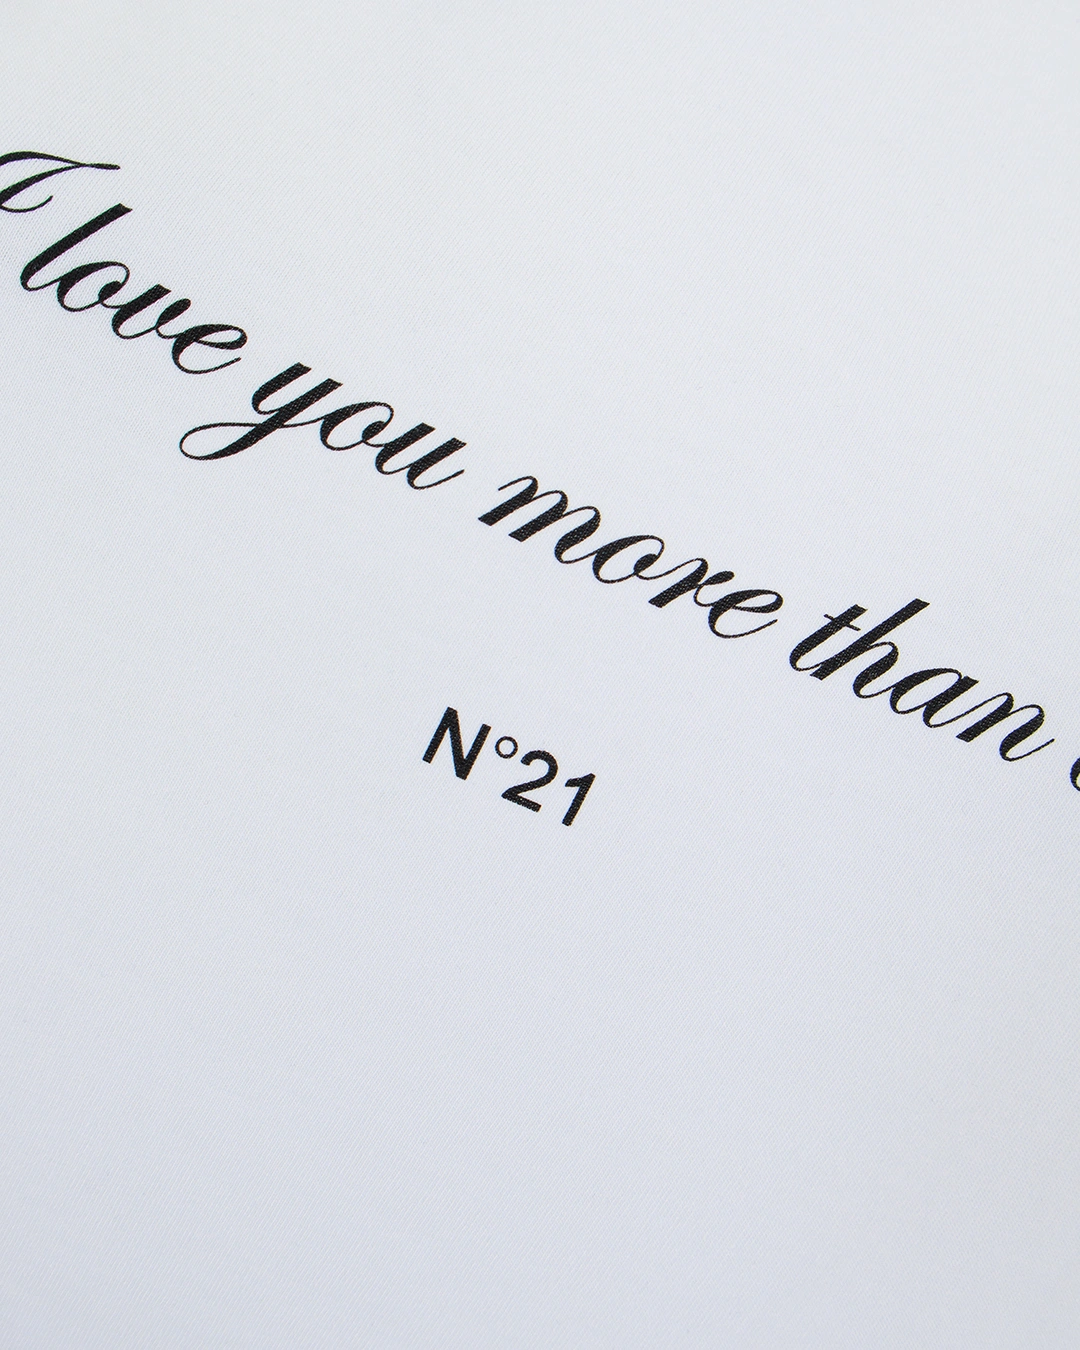 I love you more than
N°21